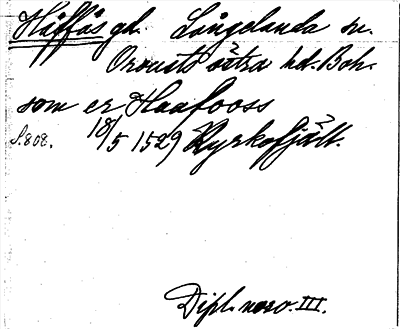 Håffås gd. Långelanda sn.
Orousts östra hd. Boh.
som er Haafooss
S. 808. 18/5 1529 Kyrkofjält.
Dipl. norv. III.